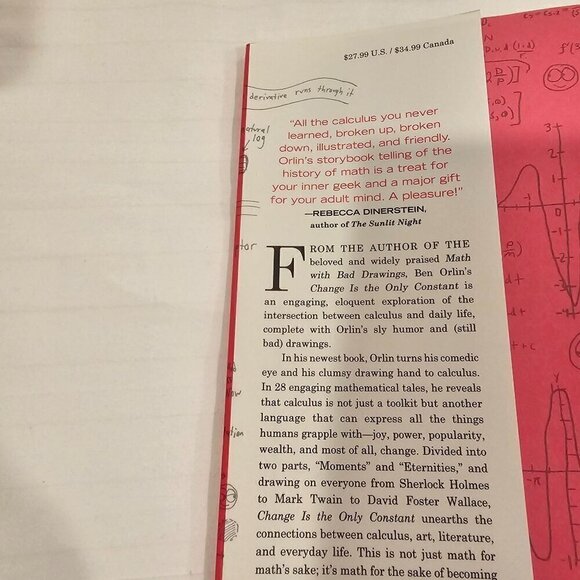 $27.99 U.S. / $34.99 Canada
derivative runs through it
natural
log
"All the calculus you never
learned, broken up, broken
down, illustrated, and friendly.
Orlin's storybook telling of the
history of math is a treat for
your inner geek and a major gift
for your adult mind. A pleasure!"
—REBECCA DINERSTEIN,
author of The Sunlit Night
FROM THE AUTHOR OF THE
beloved and widely praised Math
with Bad Drawings, Ben Orlin's
Change Is the Only Constant is
an engaging, eloquent exploration of the
intersection between calculus and daily life,
complete with Orlin's sly humor and (still
bad) drawings.
In his newest book, Orlin turns his comedic
eye and his clumsy drawing hand to calculus.
In 28 engaging mathematical tales, he reveals
that calculus is not just a toolkit but another
language that can express all the things
humans grapple with—joy, power, popularity,
wealth, and most of all, change. Divided into
two parts, "Moments" and "Eternities," and
drawing on everyone from Sherlock Holmes
to Mark Twain to David Foster Wallace,
Change Is the Only Constant unearths the
connections between calculus, art, literature,
and everyday life. This is not just math for
math's sake; it's math for the sake of becoming